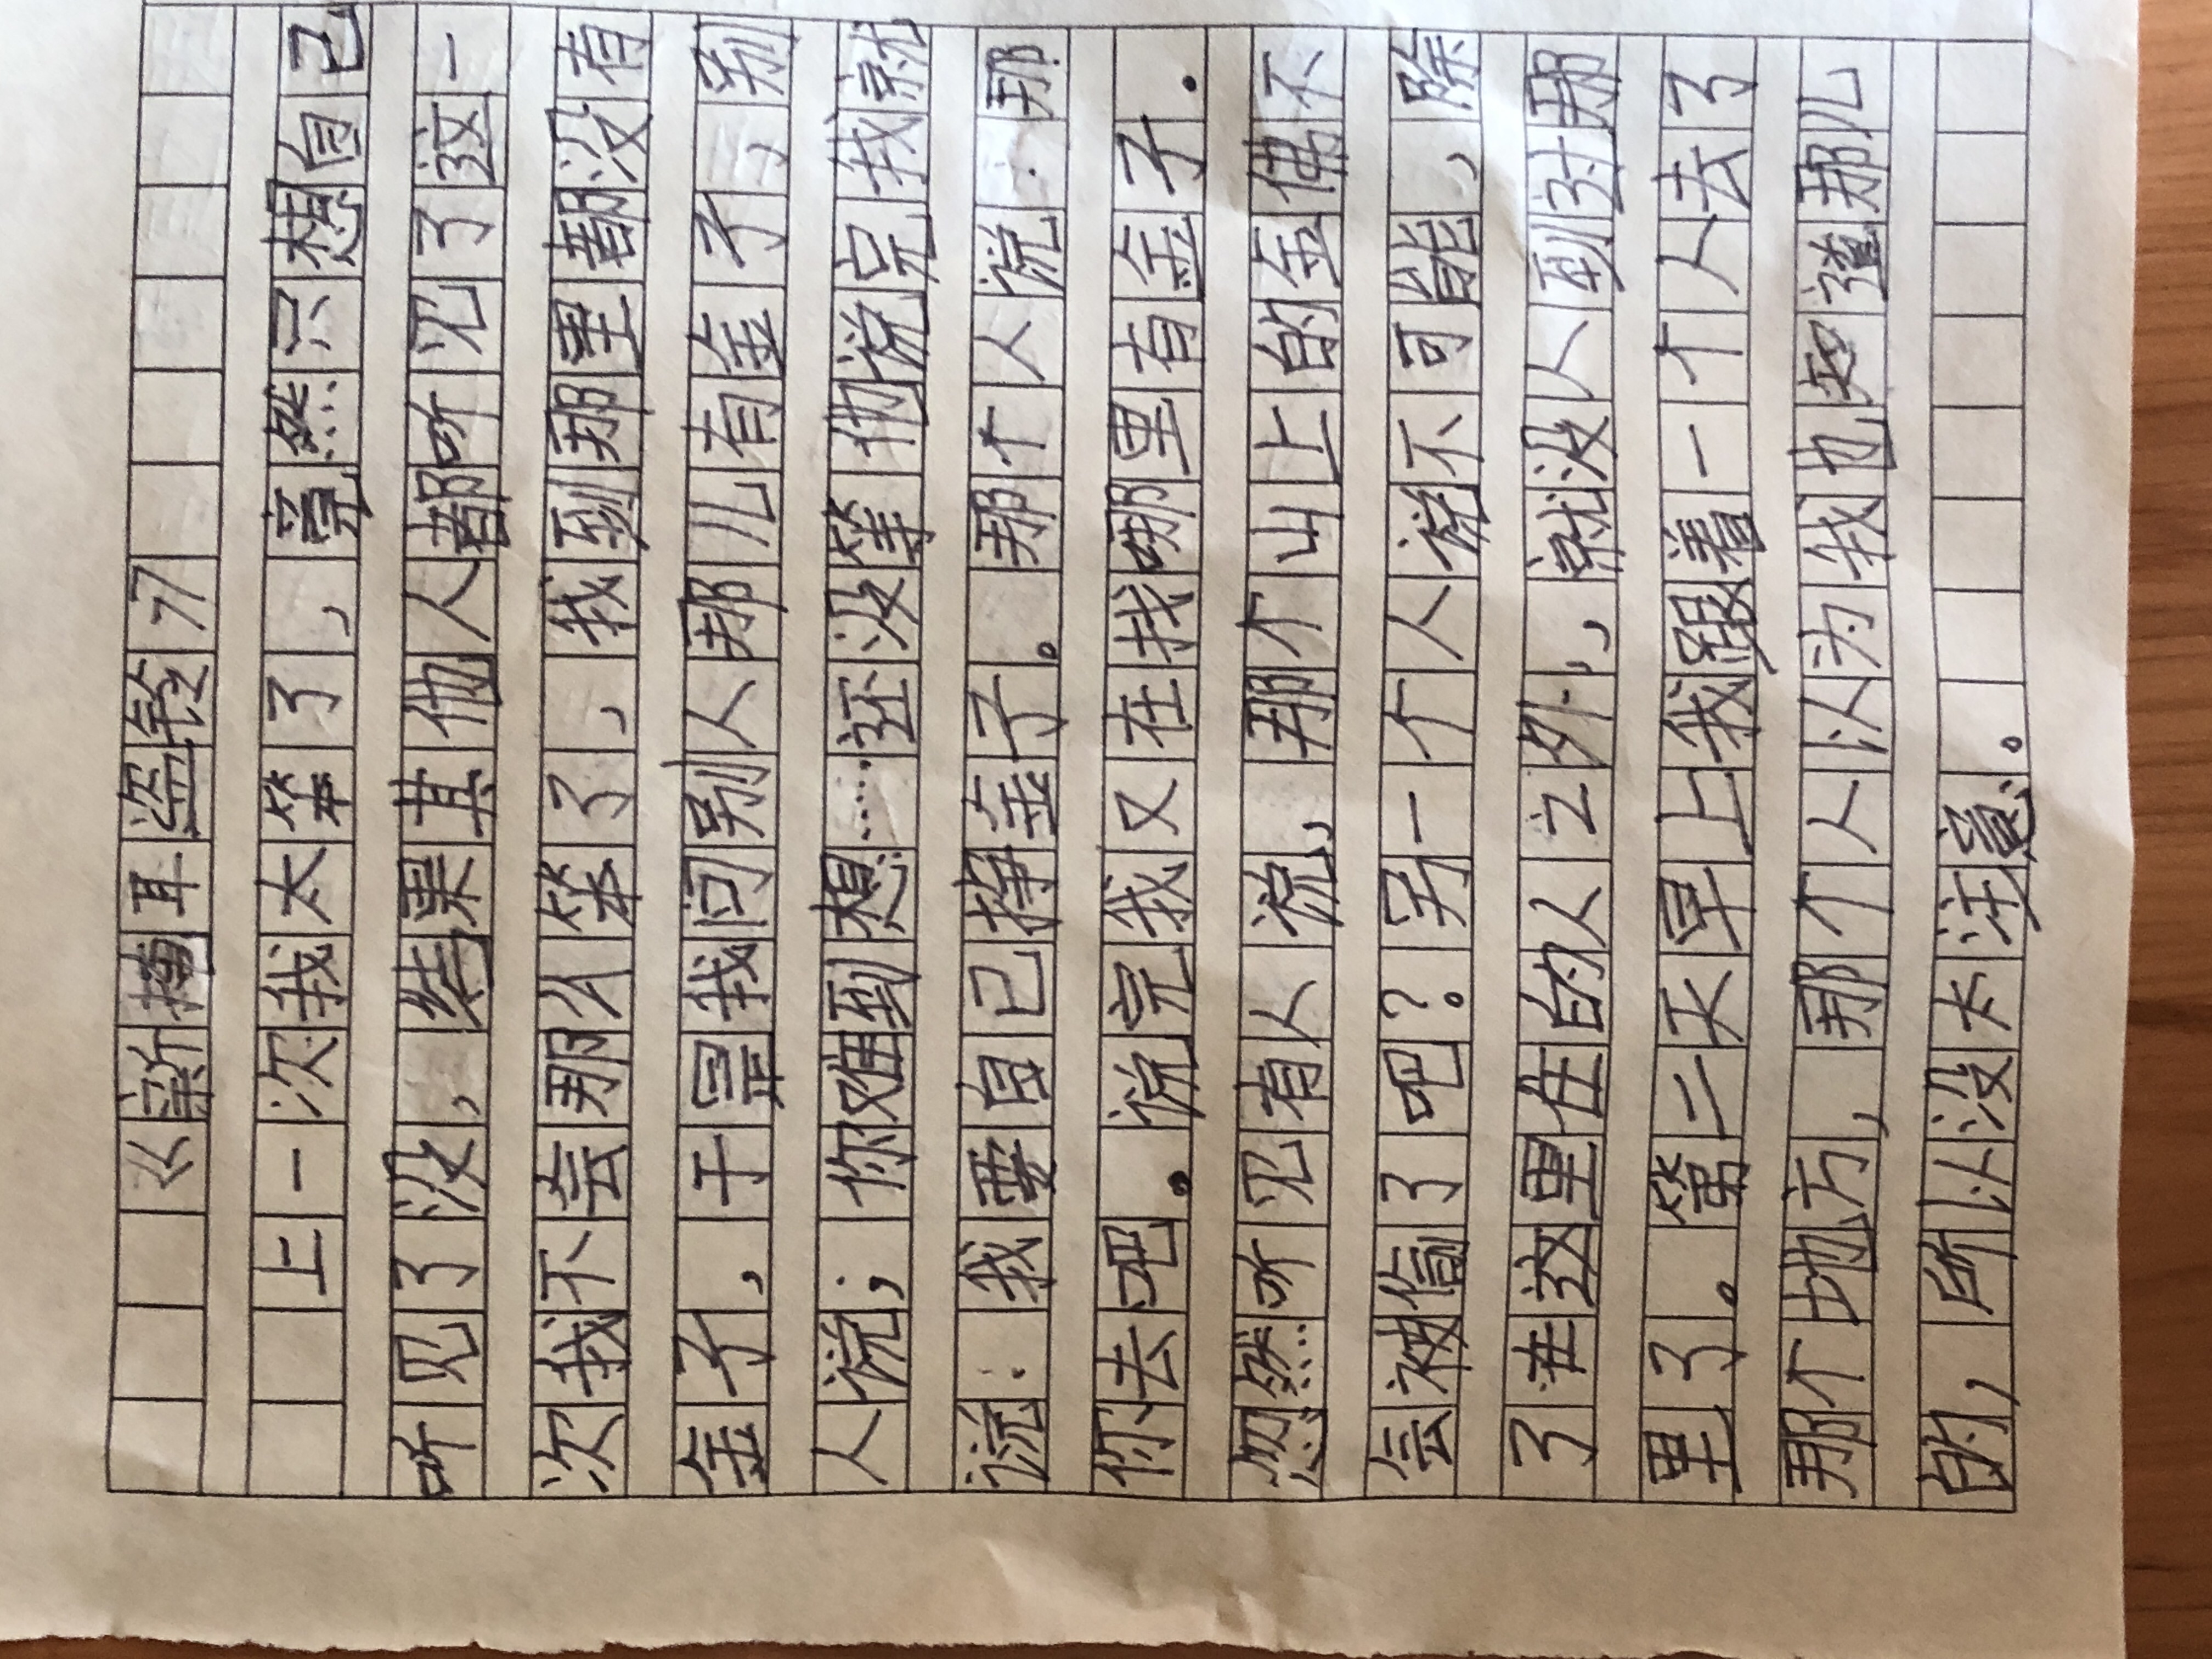 《新掩耳盗铃》
上一次我太笨了，竟然只想自己
听见了没，结果其他人都听见了这一
次我不会那么笨了，我到那里都没有
金子，于是我问别人那儿有金子，别
人说；你难到想……还没等他说完我就
说：我要自己挣金子。那个人说：那
你去吧。说完我又在找哪里有金子.
忽然听见有人说，那个山上的金佛不
会被偷了吧？另一个人说不可能，除
了在这里住的人之外，就没人到过那
里了。第二天早上我跟着一个人去了
那个地方，那个人以为我也知道那儿
的，所以没太注意。